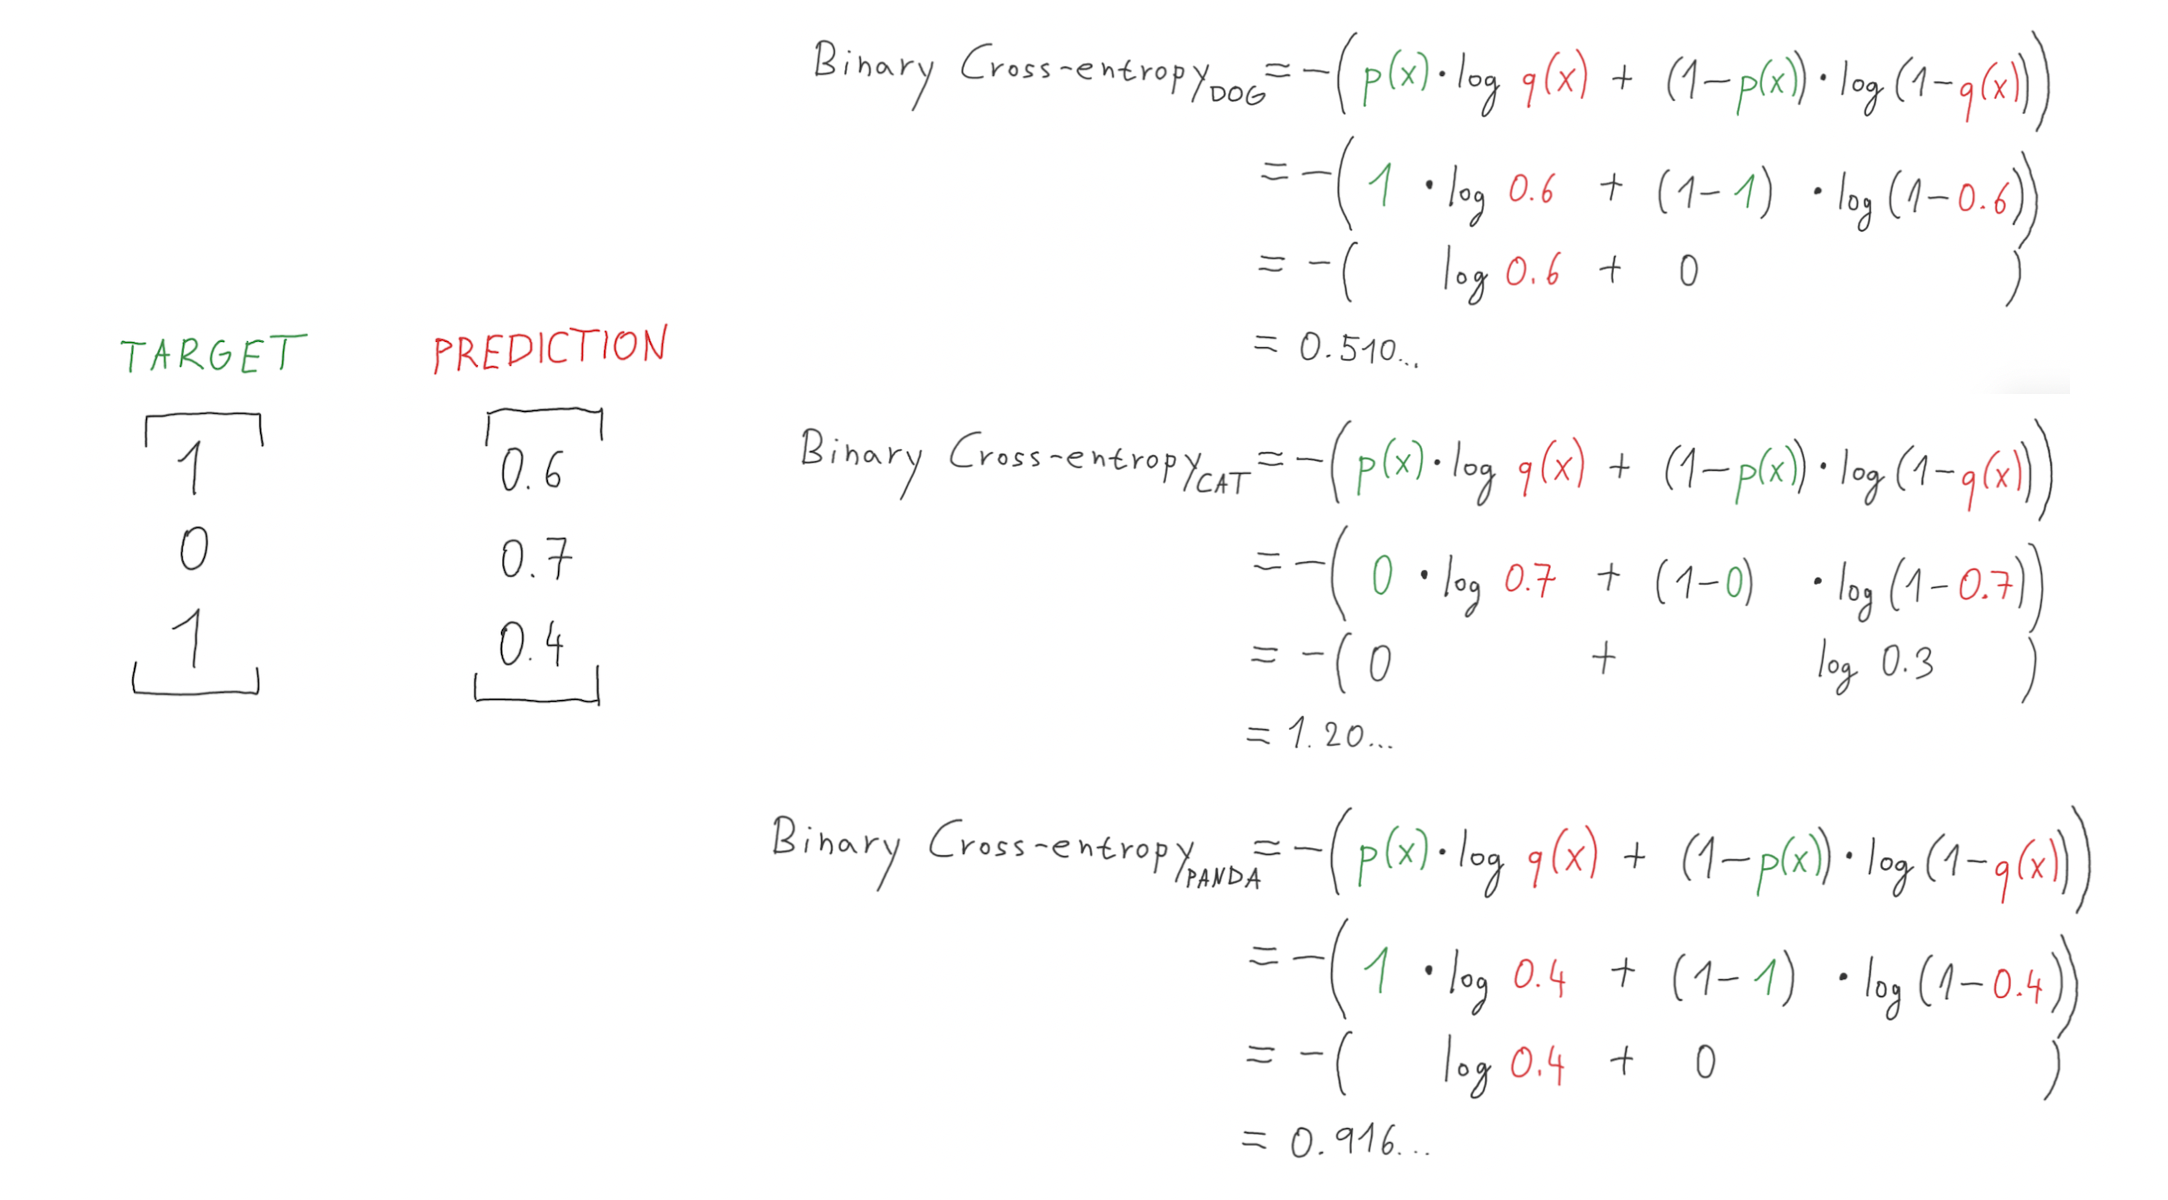 TARGET
PREDICTION
1
0
1
0.6
0.7
0.4
Binary Cross-entropy_DOG = -(p(x)·log q(x) + (1-p(x))·log(1-q(x)))
= -(1·log 0.6 + (1-1)·log(1-0.6))
= -( log 0.6 + 0 )
= 0.510...
Binary Cross-entropy_CAT = -(p(x)·log q(x) + (1-p(x))·log(1-q(x)))
= -(0·log 0.7 + (1-0)·log(1-0.7))
= -(0 + log 0.3 )
= 1.20...
Binary Cross-entropy_PANDA = -(p(x)·log q(x) + (1-p(x))·log(1-q(x)))
= -(1·log 0.4 + (1-1)·log(1-0.4))
= -( log 0.4 + 0 )
= 0.916...